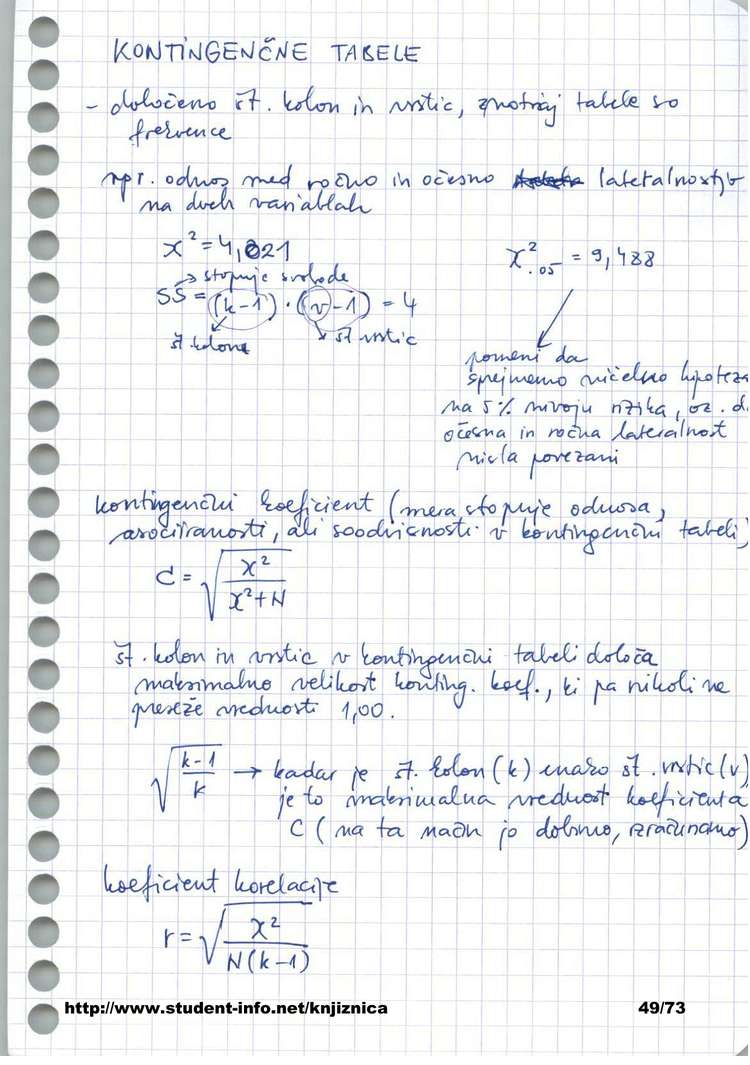 KONTINGENČNE TABELE
- določeno št. kolon in vrstic, znotraj tabele so
frekvence
npr. odnos med ročno in očesno lateralnostjo
na dveh variablah
χ² = 4,021
χ².05 = 9,488
→ stopnje svobode
SS = (k-1) · (v-1) = 4
št. kolone
št vrstic
pomeni da
sprejmemo ničelno hipotezo
na 5% nivoju rizika, oz. d
očesna in ročna lateralnost
nista povezani
kontingenčni koeficient (mera stopnje odnosa,
asociiranosti, ali soodvisnosti v kontingenčni tabeli)
C = √(χ² / (χ²+N))
št. kolon in vrstic v kontingenčni tabeli določa
maksimalno velikost konting. koef., ki pa nikoli ne
preseže vrednosti 1,00.
√((k-1) / k) → kadar je št. kolon (k) enako št. vrstic (v)
je to maksimalna vrednost koeficienta
C (na ta način jo dobimo, izračunamo)
koeficient korelacije
r = √(χ² / (N(k-1)))
http://www.student-info.net/knjiznica 49/73